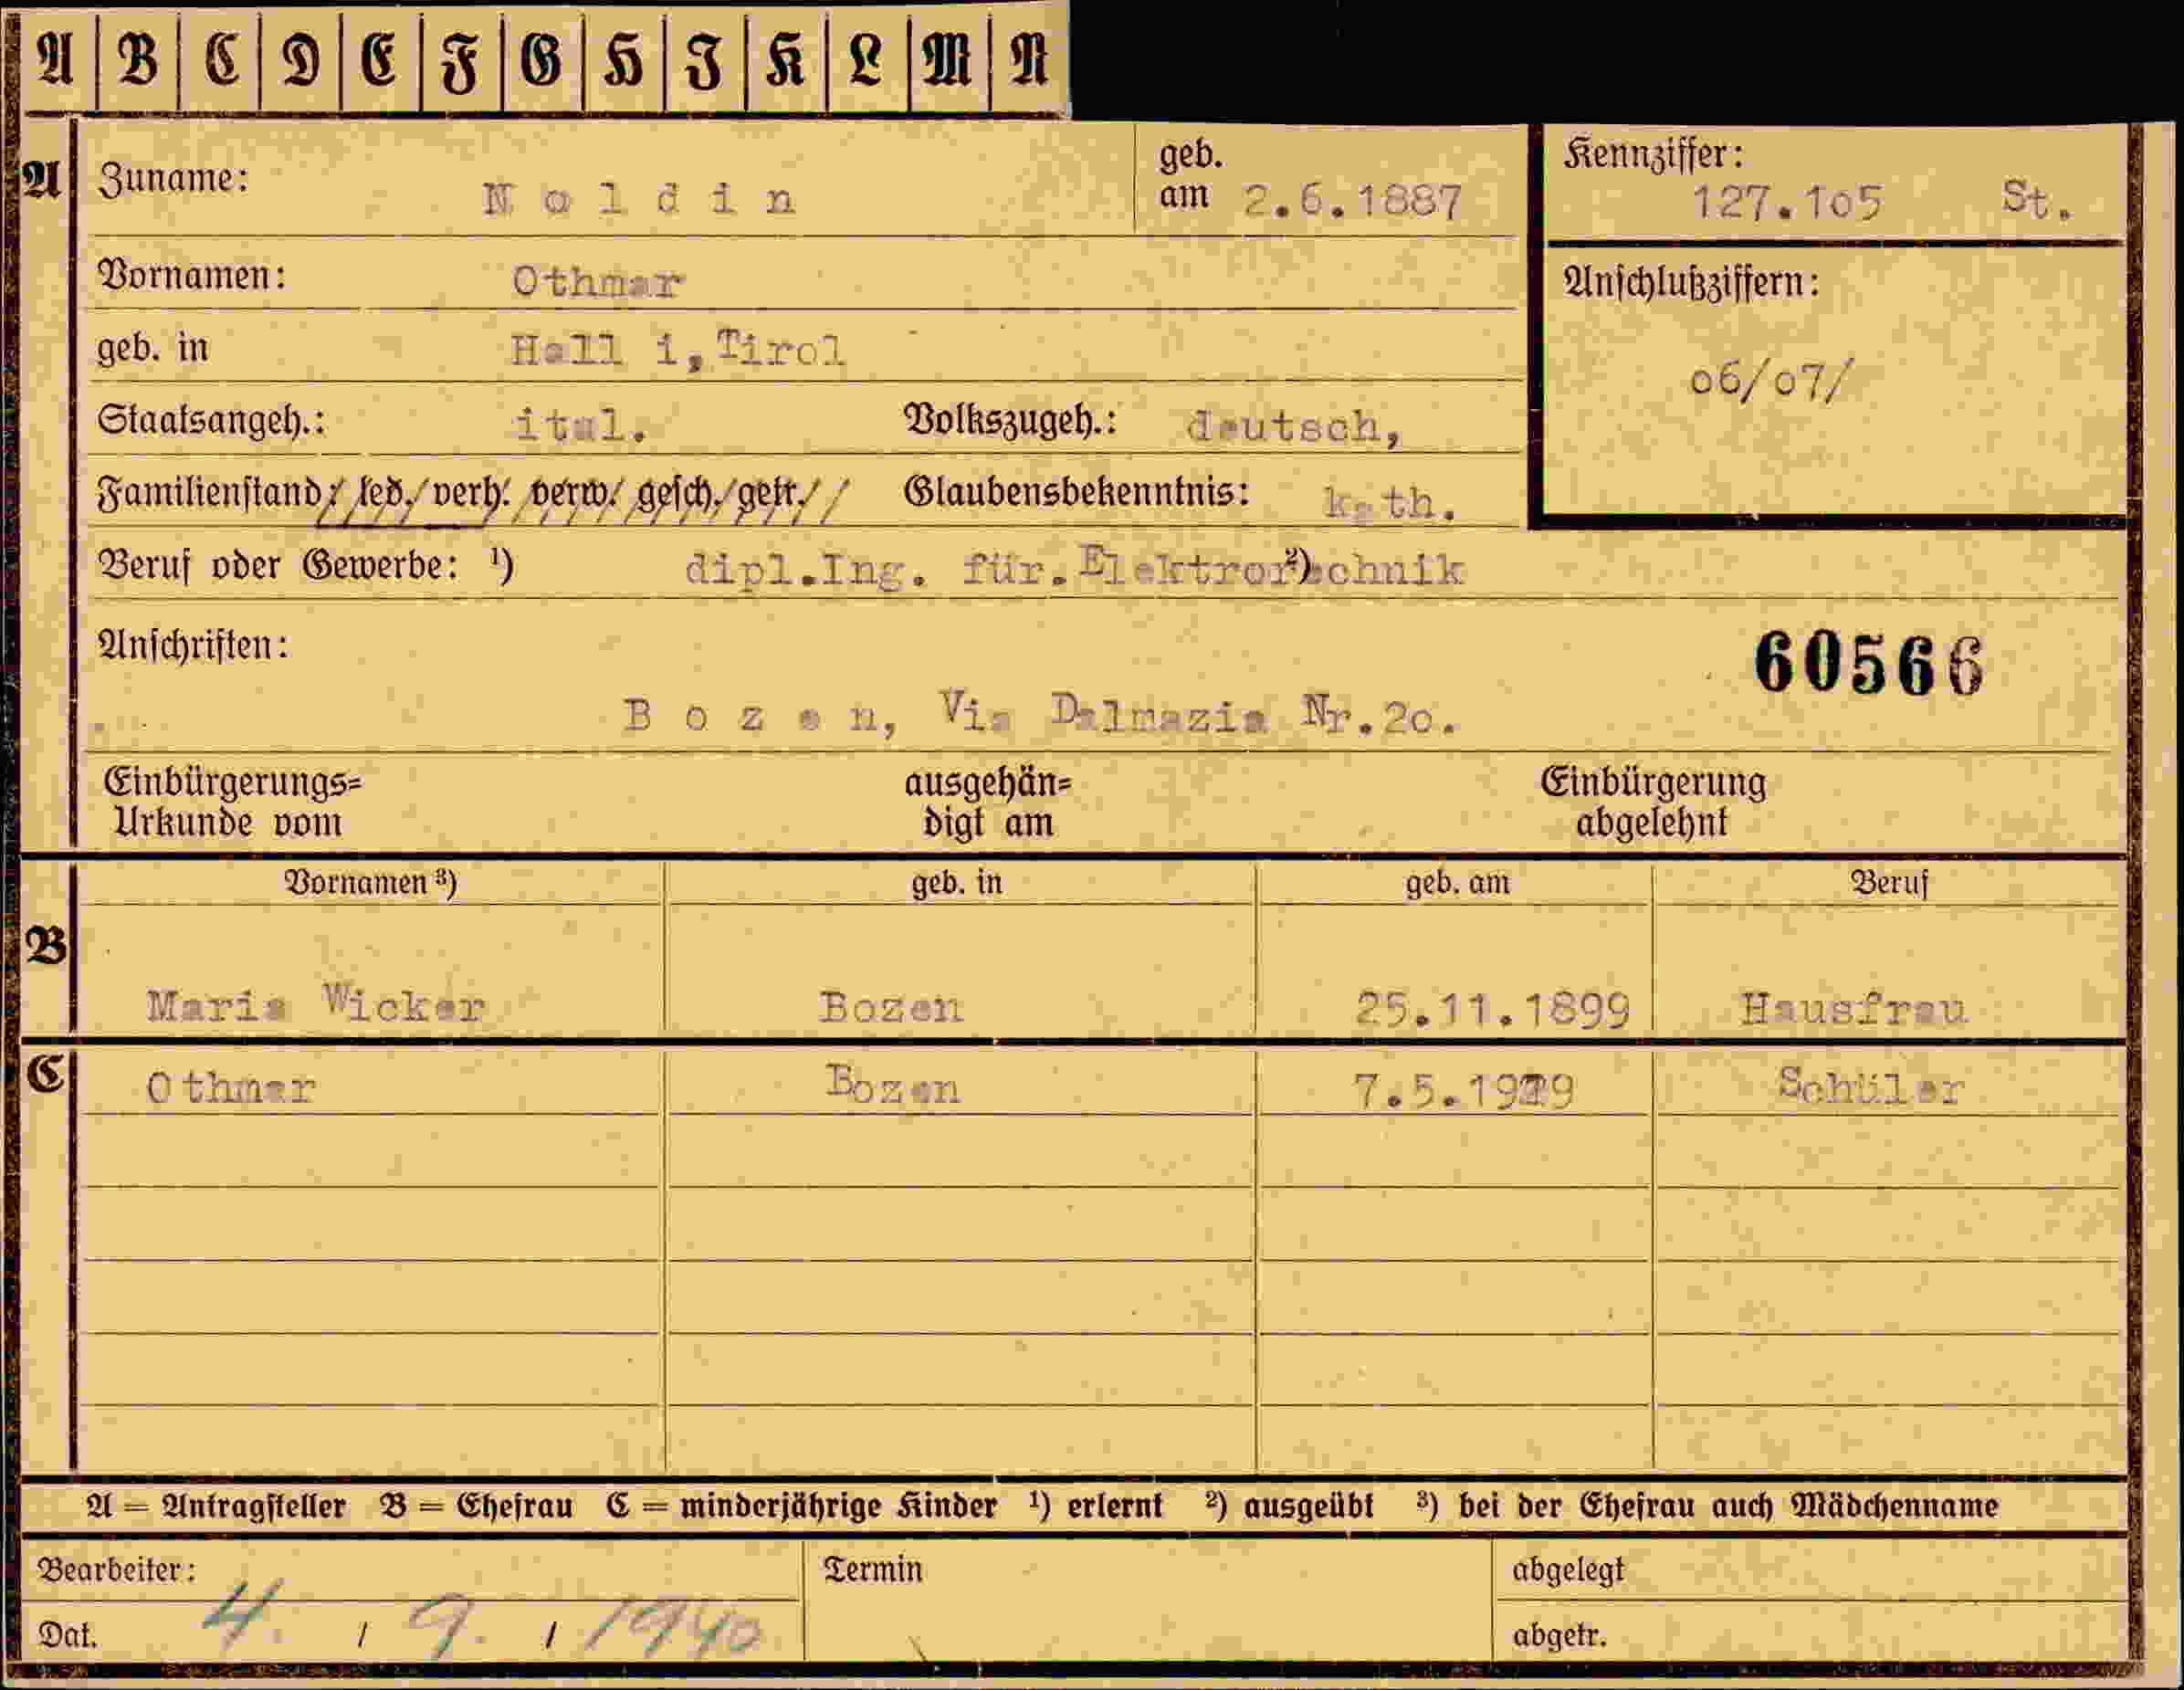 A B C D E F G H I K L M N
A Zuname: Noldin geb. am 2.6.1887 Kennziffer: 127.1o5 St.
Vornamen: Othmar Anschlußziffern:
geb. in Hall i,Tirol o6/o7/
Staatsangeh.: ital. Volkszugeh.: deutsch,
Familienstand: led. verh. verw. gesch. getr. Glaubensbekenntnis: kath.
Beruf oder Gewerbe: ¹) dipl.Ing. für.Elektrotechnik ²)
Anschriften: 60566
Bozen, Via Dalmazia Nr.2o.
Einbürgerungs= ausgehän= Einbürgerung
Urkunde vom digt am abgelehnt
Vornamen ³) geb. in geb. am Beruf
B
Maria Wicker Bozen 25.11.1899 Hausfrau
C Othmar Bozen 7.5.19 9 Schüler
A = Antragsteller B = Ehefrau C = minderjährige Kinder ¹) erlernt ²) ausgeübt ³) bei der Ehefrau auch Mädchenname
Bearbeiter: Termin abgelegt
Dat. 4. / 9. / 1940 abgetr.